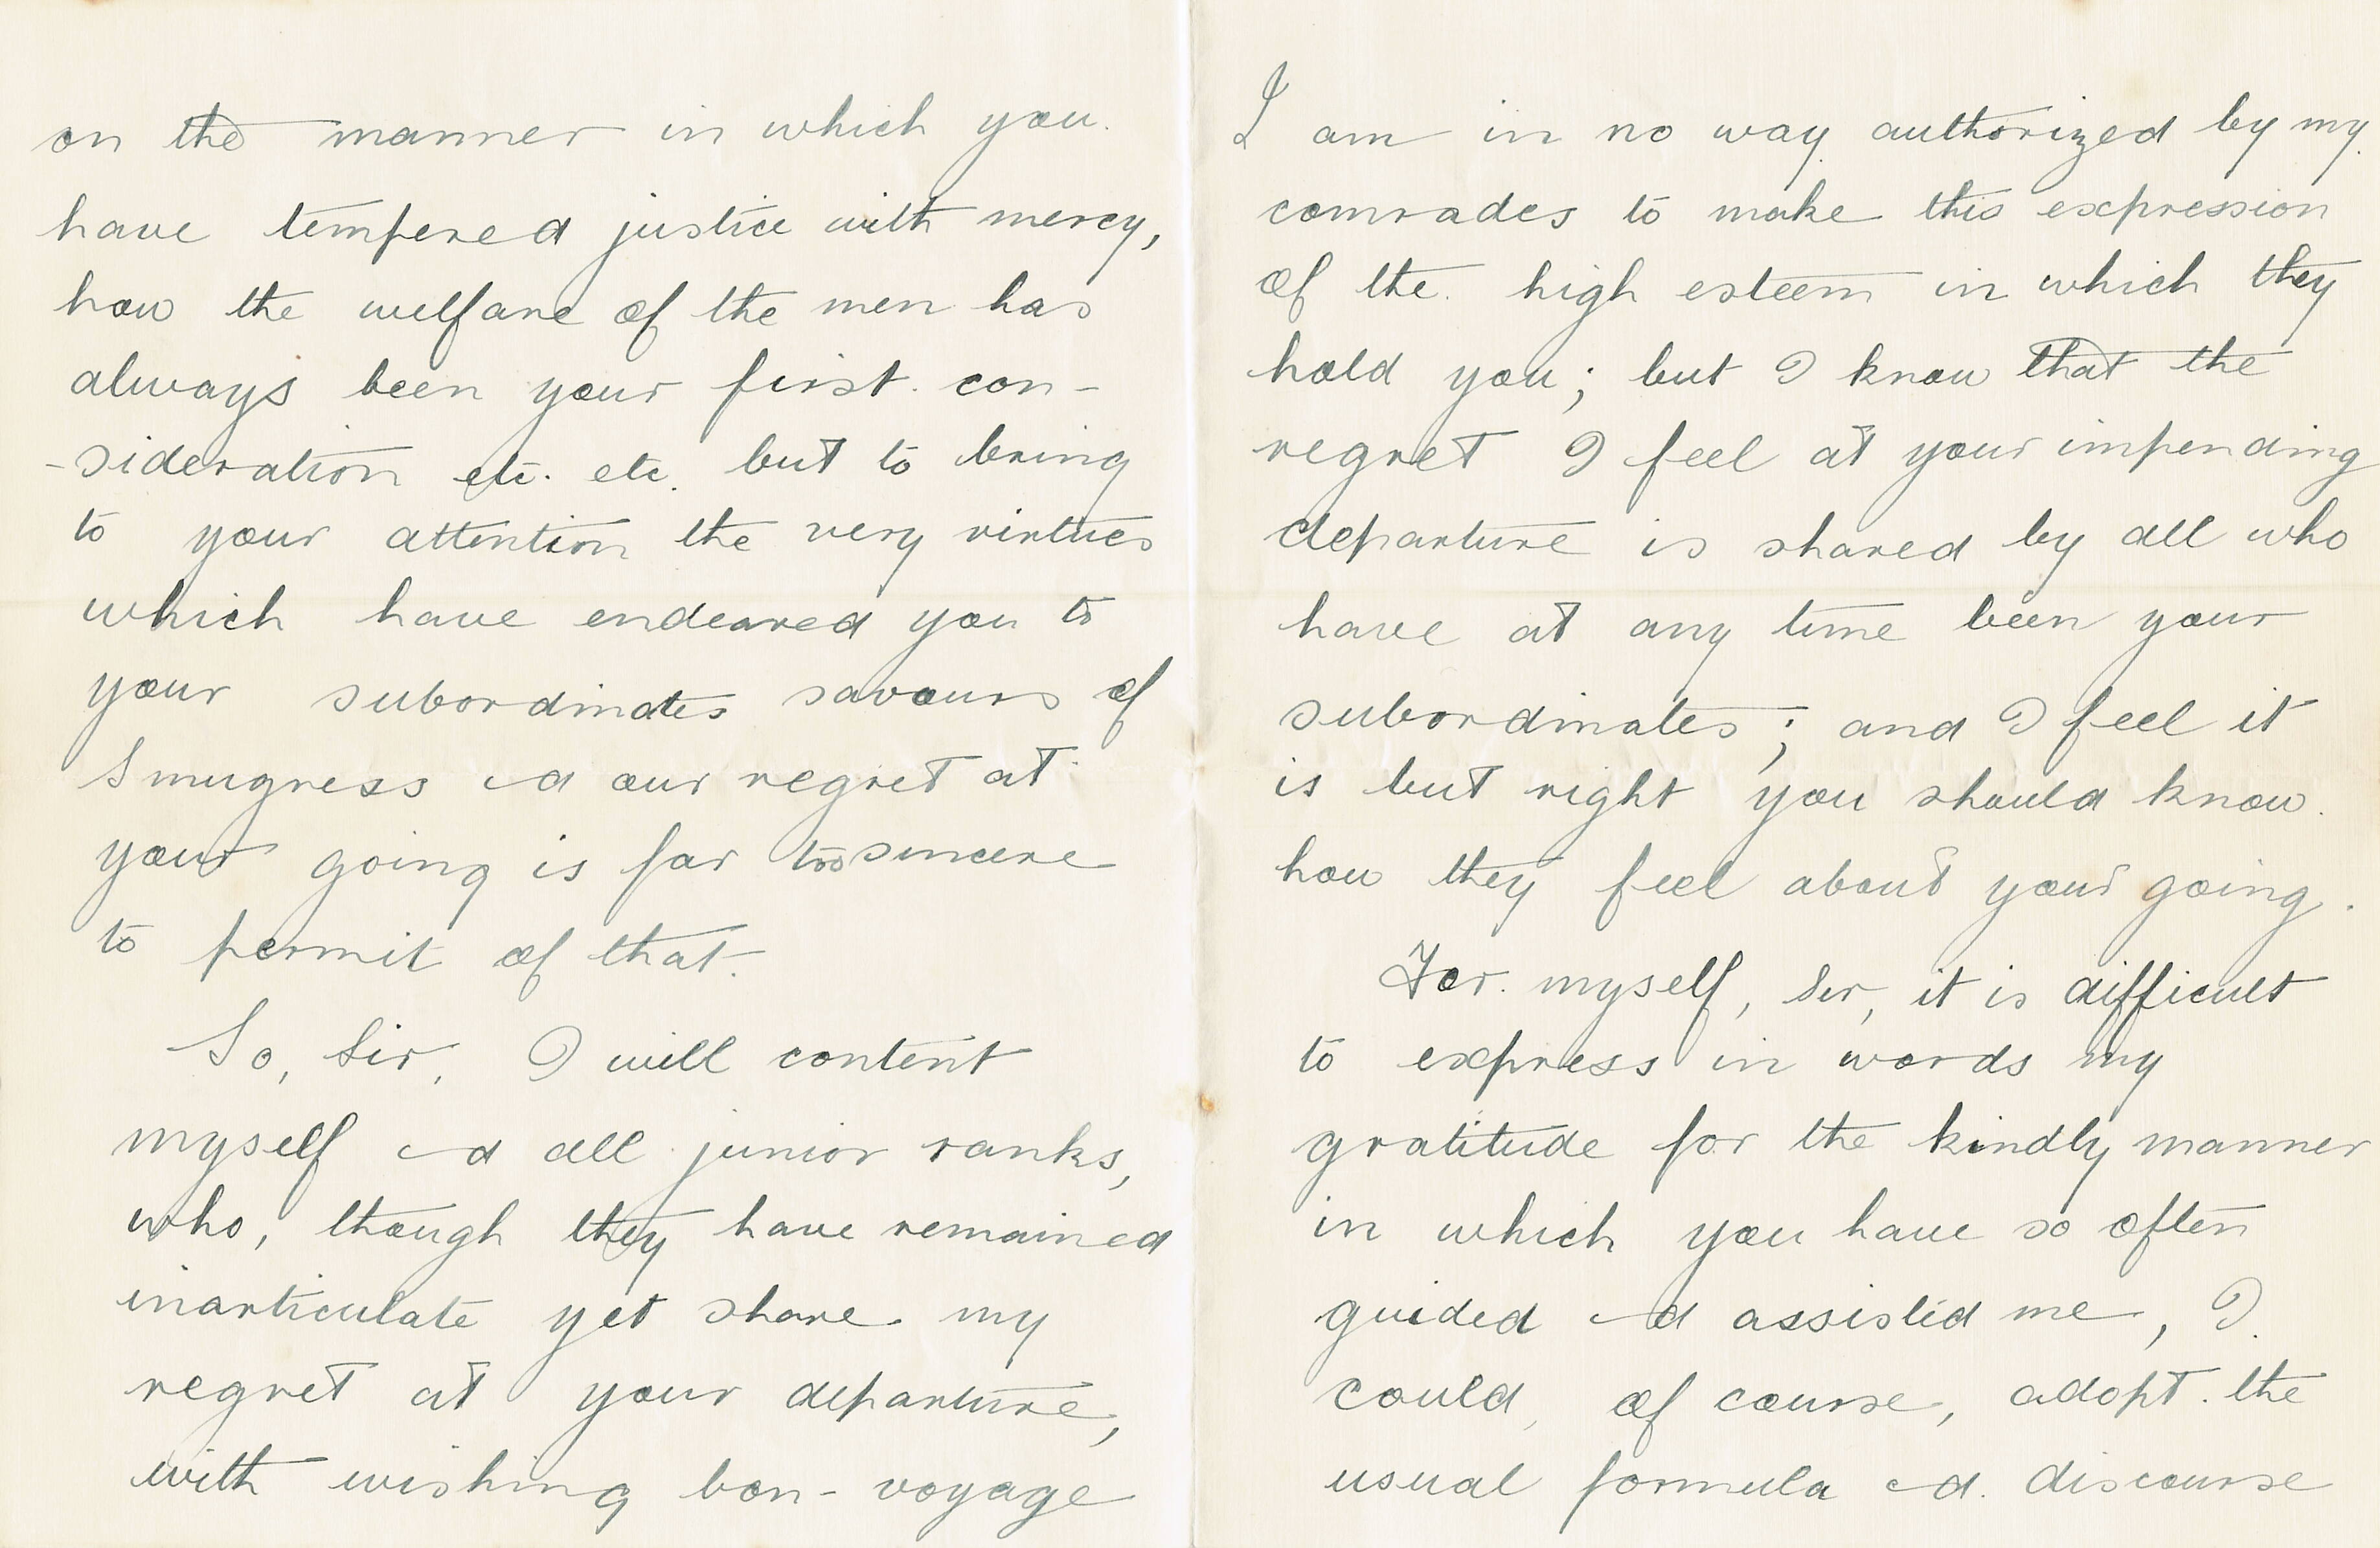 on the manner in which you
have tempered justice with mercy,
how the welfare of the men has
always been your first con-
-sideration etc. etc. but to bring
to your attention the very virtues
which have endeared you to
your subordinates savours of
Smugness and our regret at
your going is far too sincere
to permit of that.
So, Sir, I will content
myself and all junior ranks,
who, though they have remained
inarticulate yet share my
regret at your departure,
with wishing bon-voyage
I am in no way authorized by my
comrades to make this expression
of the high esteem in which they
hold you; but I know that the
regret I feel at your impending
departure is shared by all who
have at any time been your
subordinates; and I feel it
is but right you should know
how they feel about your going.
For myself, Sir, it is difficult
to express in words my
gratitude for the kindly manner
in which you have so often
guided and assisted me, I
could, of course, adopt the
usual formula and discourse